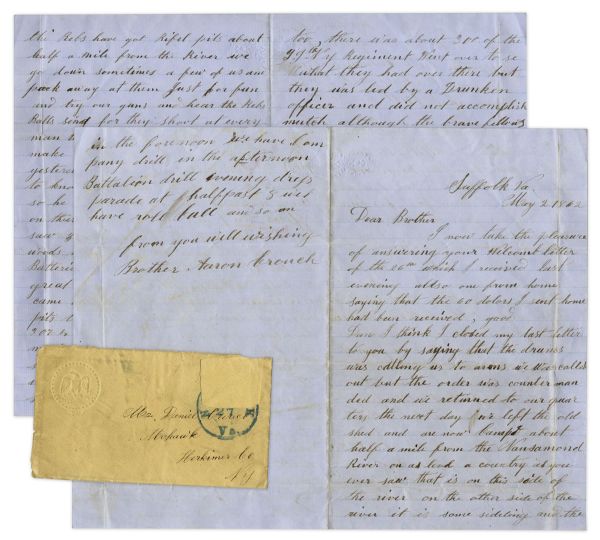 Suffolk Va.
May 2 1862
Dear Brother
I now take the pleasure
of answering your Welcomb letter
of the 26th which I received last
evening also one from home
saying that the 60 dolors I sent home
had been received, good
I think I closed my last letter
to you by saying that the drums
was calling us to arms we was called
out but the order was counterman
ded and we returned to our quar
ters the next day we left the old
shed and are now camped about
half a mile from the Nansamond
River on as level a country as you
ever saw that is on this side of
the river on the other side of the
river it is some sideling and the
the Rebs have got Rifel pits about
half a mile from the River we
go down sometimes a few of us and
peck away at them Just for fun
and try our guns and hear the Rebs
Balls sing for they shoot at every
man t
make
yesterd
to kno
so he
on thei
saw
woods
Batterie
great
came
pits
too, there was about 300 of the
99th NY Regiment Went over to se
what they had over there but
they was led by a Drunken
officer and did not accomplish
mutch although the brave fellows
in the forenoon We have Com
pany drill in the afternoon
Battalion drill evening dress
parade at halfpast 8 we
have roll Call and so on
from you well wishing
Brother. Aaron Crouch
Daniel Crouch
Mohawk
Herkimer Co
NY
27
Va.